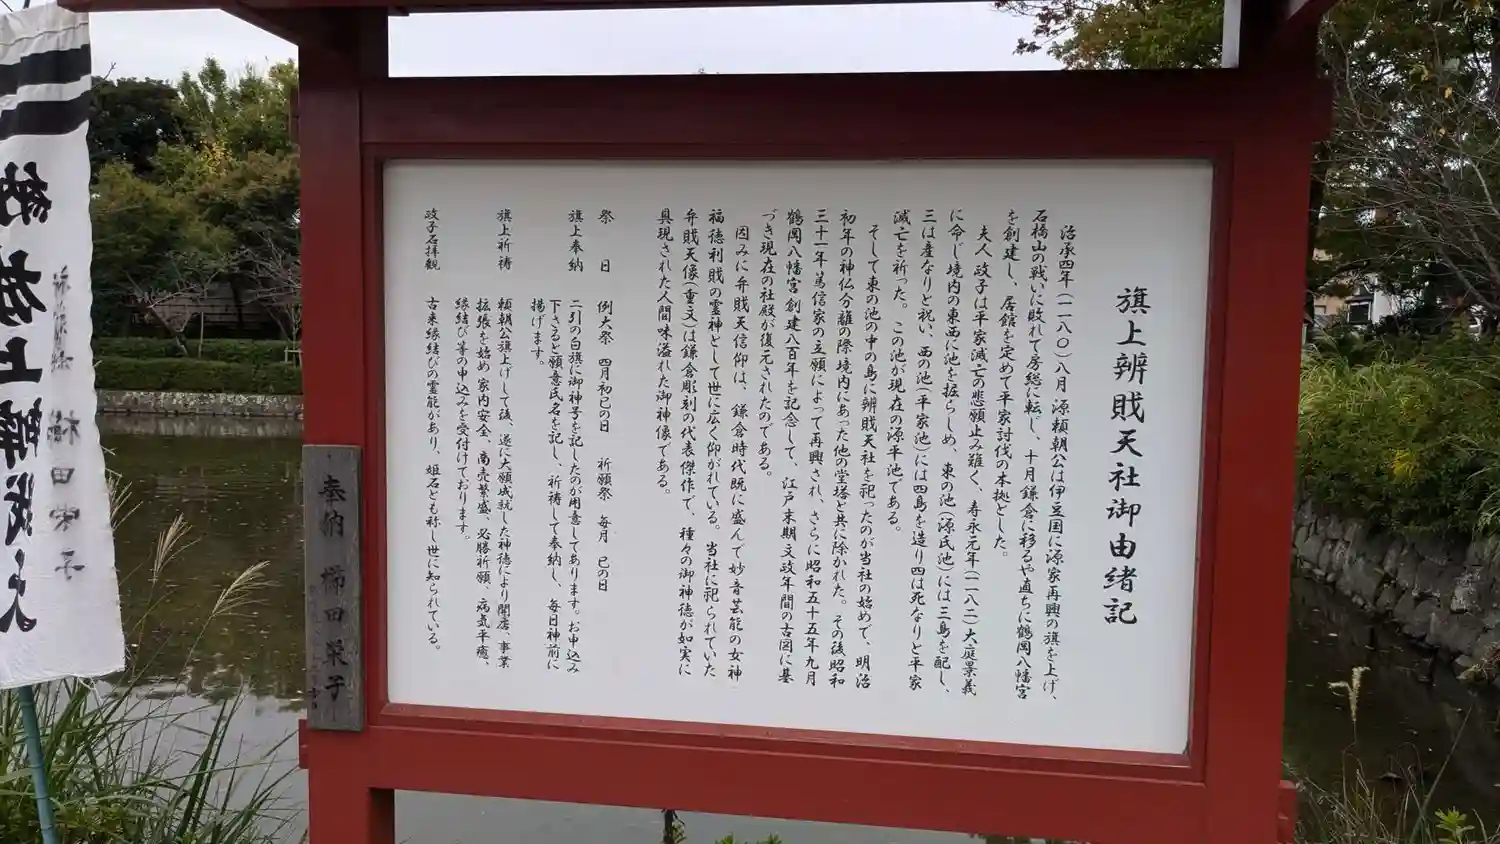 旗上辨財天社御由緒記
治承四年(一一八〇)八月源頼朝公は伊豆国に源家再興の旗を上げ、
石橋山の戦いに敗れて房総に転じ、十月鎌倉に移るや直ちに鶴岡八幡宮
を創建し、居館を定めて平家討伐の本拠とした。
夫人政子は平家滅亡の悲願止み難く、寿永元年(一一八二)大庭景義
に命じ境内の東西に池を掘らしめ、東の池(源氏池)には三島を配し、
三は産なりと祝い、西の池(平家池)には四島を造り四は死なりと平家
滅亡を祈った。この池が現在の源平池である。
そして東の池の中の島に辨財天社を祀ったのが当社の始めで、明治
初年の神仏分離の際境内にあった他の堂塔と共に除かれた。その後昭和
三十一年篤信家の立願によって再興され、さらに昭和五十五年九月
鶴岡八幡宮創建八百年を記念して、江戸末期文政年間の古図に基
づき現在の社殿が復元されたのである。
因みに弁財天信仰は、鎌倉時代既に盛んで妙音芸能の女神
福徳利財の霊神として世に広く仰がれている。当社に祀られていた
弁財天像(重文)は鎌倉彫刻の代表傑作で、種々の御神徳が如実に
具現された人間味溢れた御神像である。
祭日 例大祭 四月初巳の日 祈願祭 毎月 巳の日
旗上奉納 二引の白旗に御神号を記したのが用意してあります。お申込み
下さると願意氏名を記し、祈祷して奉納し、毎日神前に
揚げます。
旗上祈祷 頼朝公旗上げして後、遂に大願成就した神徳により開店、事業
拡張を始め家内安全、商売繁盛、必勝祈願、病気平癒、
縁結び等の申込みを受付けております。
政子石拝観 古来縁結びの霊能があり、姫石とも称し世に知られている。
奉納 櫛田栄子